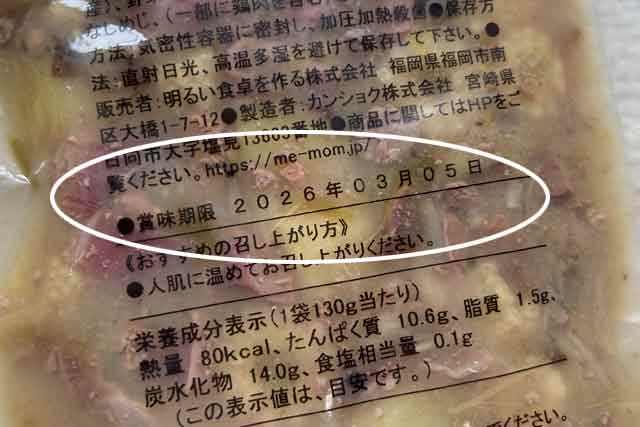 産)、
なしめじ、(一部に鶏肉を含む
加圧加熱殺菌●保存方
方法:気密性容器に密封し、
法:直射日光、高温多湿を避けて保存して下さい。●
販売者:明るい食卓を作る株式会社 福岡県福岡市南
区大橋1-7-12●製造者:カンショク株式会社 宮崎県
日向市大字塩見13603番地●商品に関してはHPをご
覧ください。https://me-mom.jp/
●賞味期限 2026年03月05日
《おすすめの召し上がり方》
●人肌に温めてお召し上がりください。
栄養成分表示(1袋130g当たり)
熱量 80kcal、たんぱく質 10.6g、脂質 1.5g、
炭水化物 14.0g、食塩相当量 0.1g
(この表示値は、目安です。)
ください。